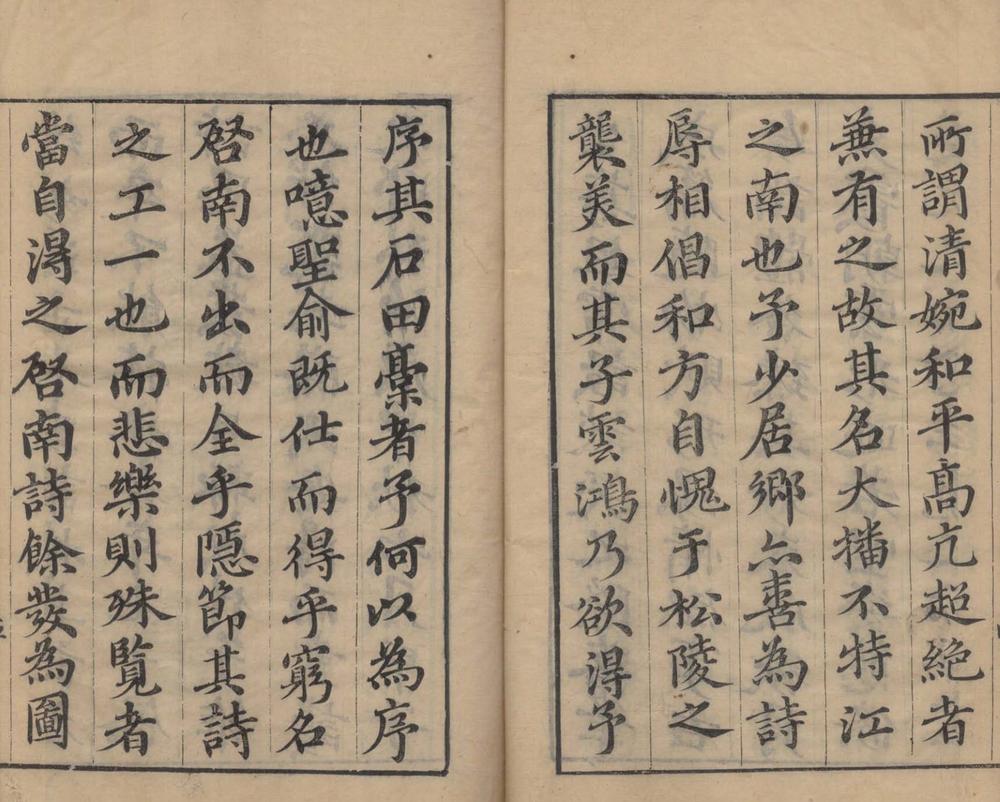 所謂清婉和平高亢超絶者
蕪有之故其名大播不特江
之南也予少居鄉亦善為詩
辱相倡和方自愧于松陵之
襲美而其子雲鴻乃欲得予
序其石田稾者予何以為序
也噫聖俞既仕而得乎窮名
啓南不出而全乎隱節其詩
之工一也而悲樂則殊覽者
當自得之啓南詩餘發為圖